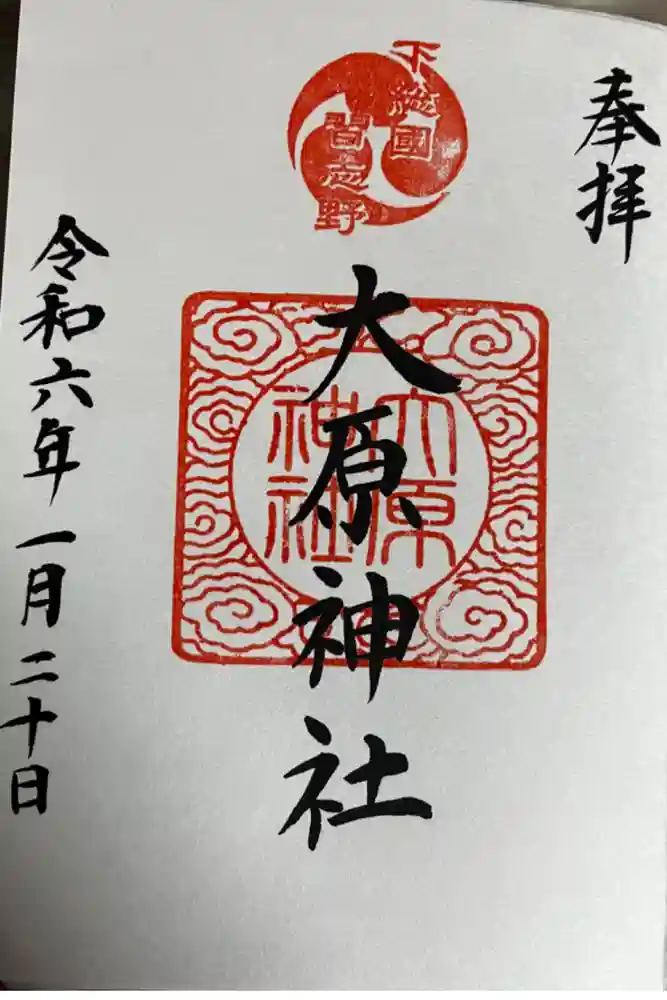 奉拝
下總國
習志野
大原神社
大原
神社
令和六年一月二十日